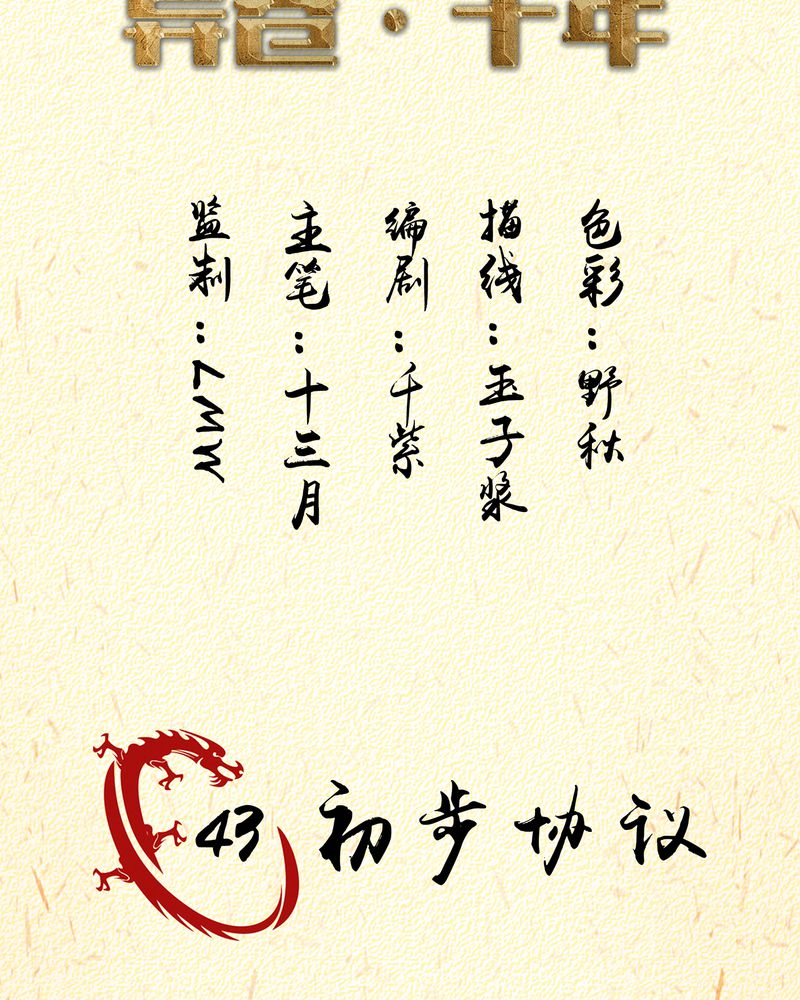 ·千年
色彩：野秋
描线：玉子浆
编剧：千紫
主笔：十三月
监制：MW7
43 初步协议